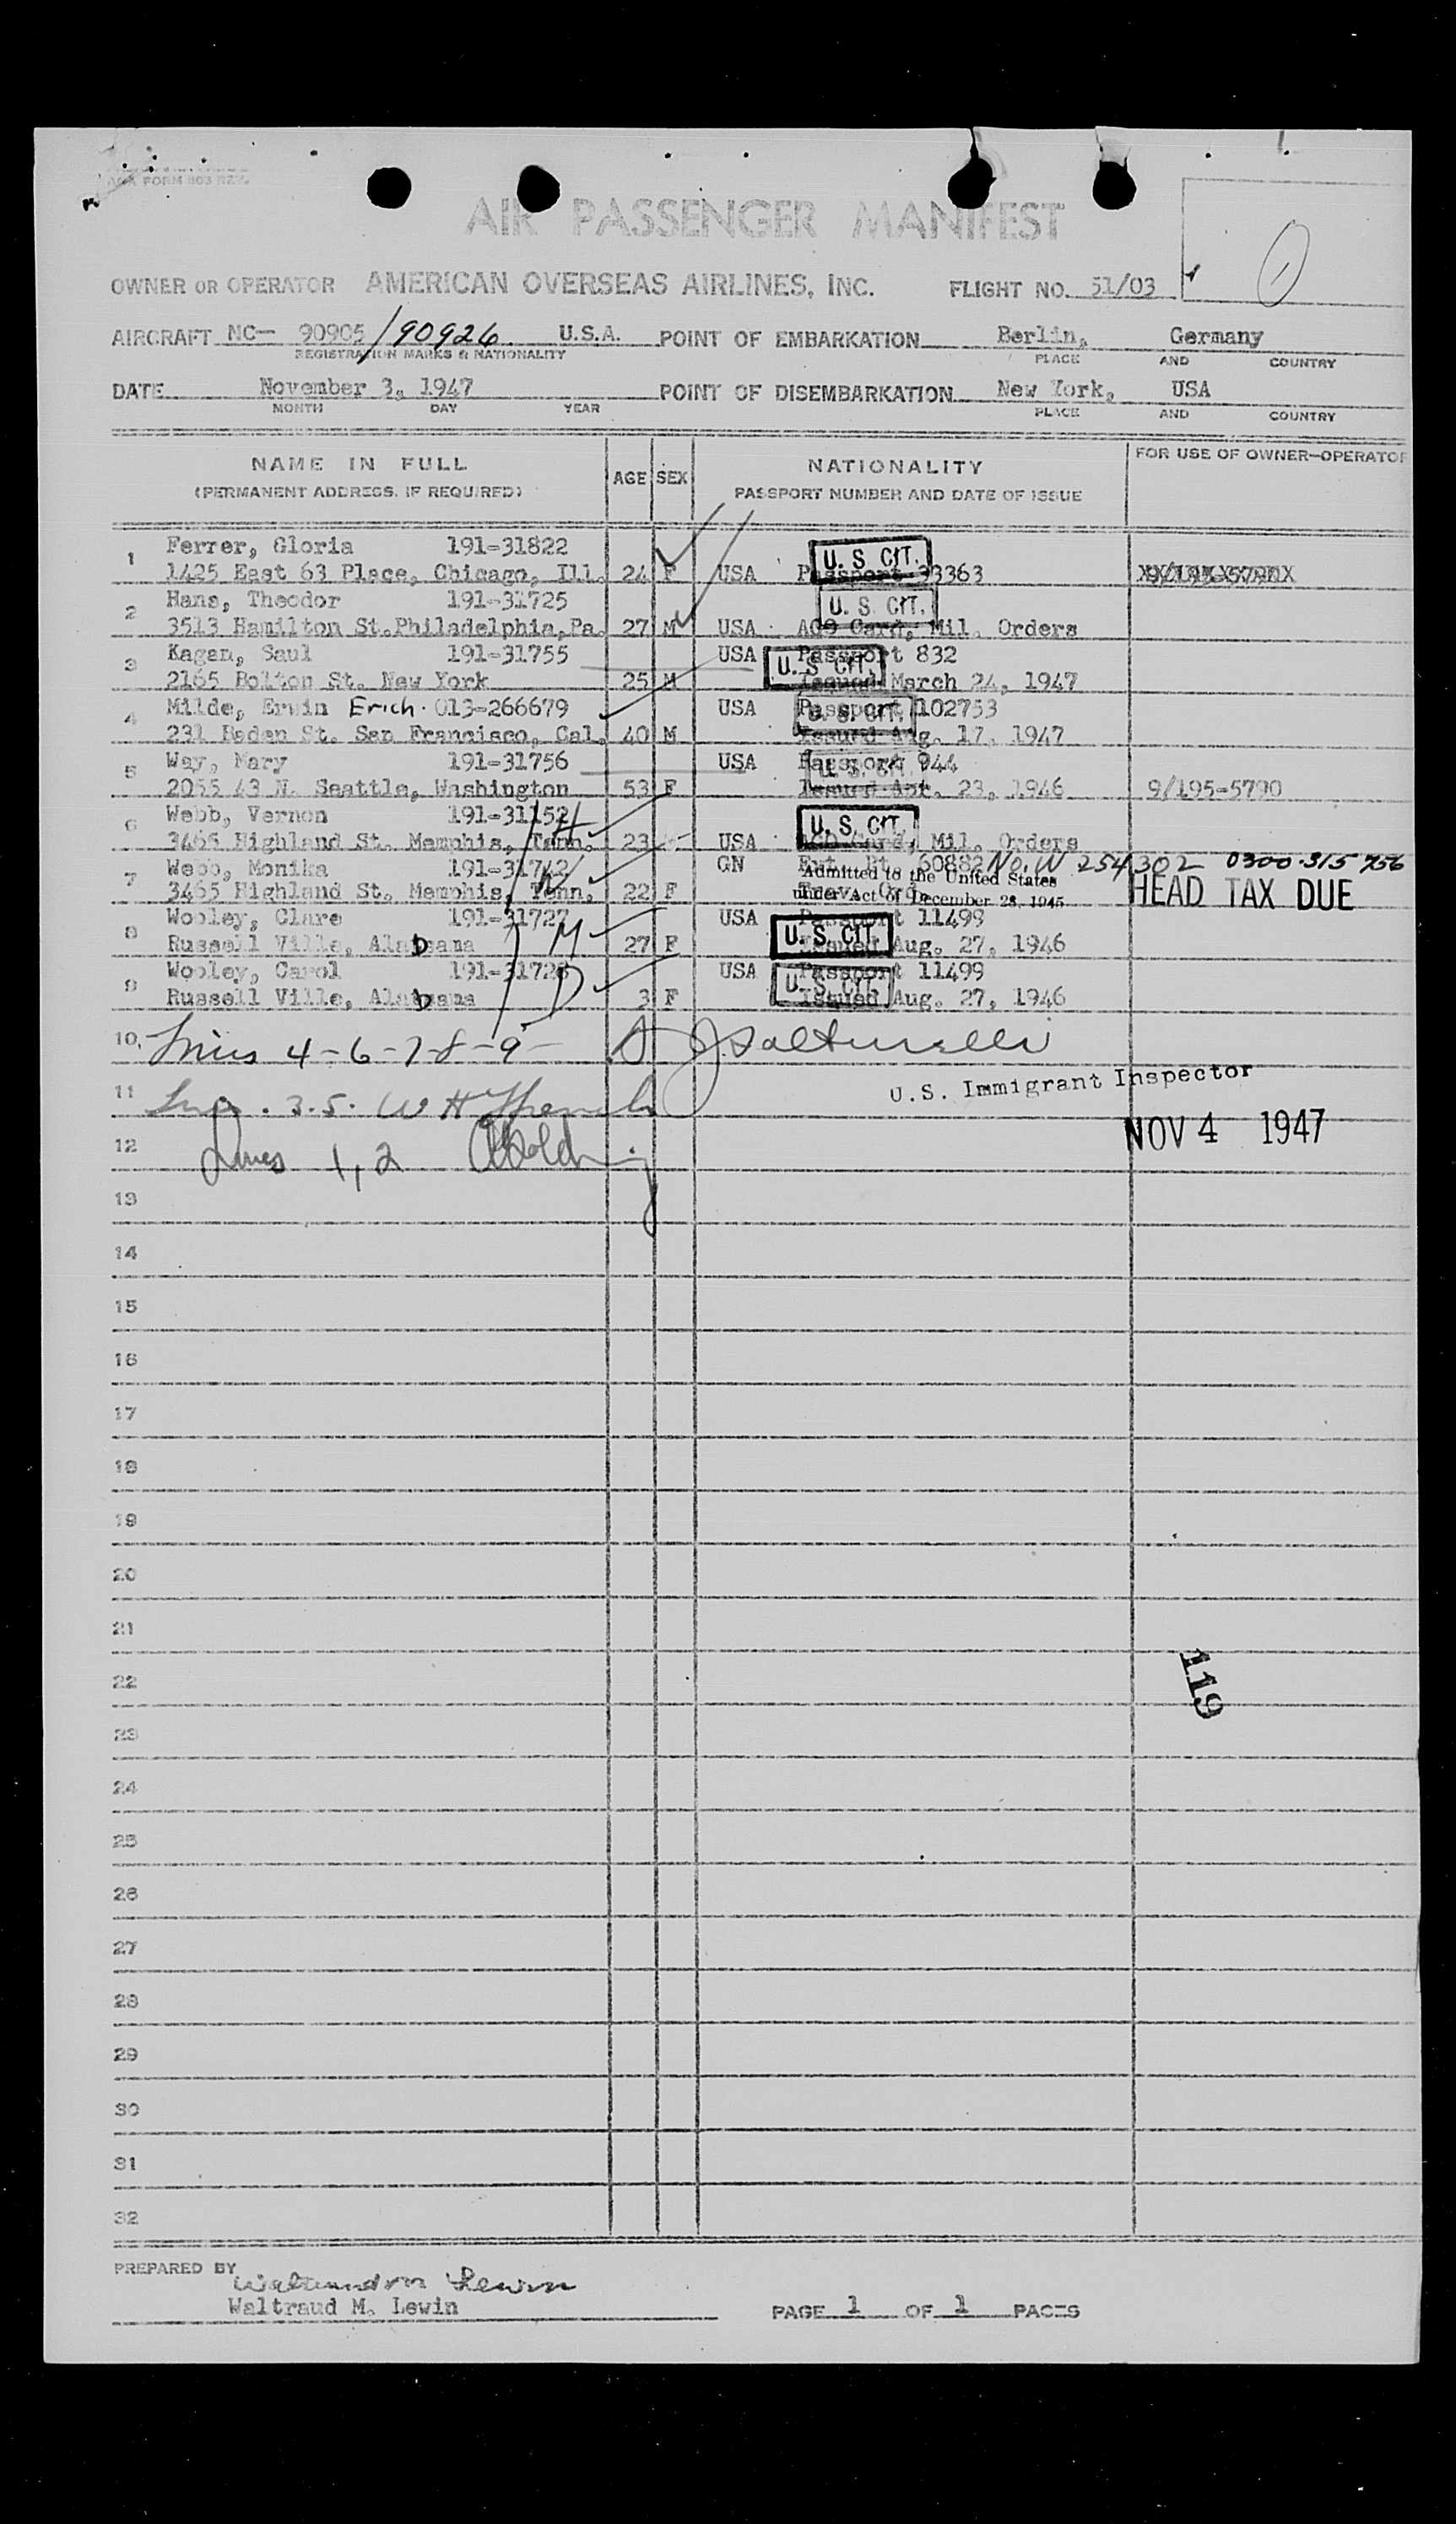 AIR PASSENGER MANIFEST
OWNER OR OPERATOR AMERICAN OVERSEAS AIRLINES, INC. FLIGHT NO. 51/03
AIRCRAFT NC— 90905/90926 U.S.A. POINT OF EMBARKATION Berlin, Germany
REGISTRATION MARKS & NATIONALITY PLACE AND COUNTRY
DATE November 3, 1947 POINT OF DISEMBARKATION New York, USA
MONTH DAY YEAR PLACE AND COUNTRY
NAME IN FULL AGE SEX NATIONALITY FOR USE OF OWNER—OPERATOR
(PERMANENT ADDRESS, IF REQUIRED) PASSPORT NUMBER AND DATE OF ISSUE
1 Ferrer, Gloria 191-31822 U. S. CIT.
1425 East 63 Place, Chicago, Ill. 24 F USA Passport 33363
2 Hans, Theodor 191-31725 U. S. CIT.
3513 Hamilton St.Philadelphia,Pa. 27 M USA AGO Card, Mil. Orders
3 Kagan, Saul 191-31755 USA Passport 832 U. S. CIT.
2165 Bolton St. New York 25 M Issued March 24, 1947
4 Milde, Erwin Erich. 013-266679 USA Passport 102753 U. S. CIT.
231 Baden St. San Francisco, Cal. 40 M Issued Aug. 17, 1947
5 Way, Mary 191-31756 USA Passport 944 U. S. CIT.
2055 43 N. Seattle, Washington 53 F Issued Apr. 23, 1946 9/195-5790
6 Webb, Vernon 191-31152 U. S. CIT.
3465 Highland St. Memphis, Tenn. 23 USA AGO Card, Mil. Orders
7 Webb, Monika 191-31742 GN 60882 No. W 254302 0300-315756
Admitted to the United States
under Act of December 28, 1945
3465 Highland St. Memphis, Tenn. 22 F HEAD TAX DUE
8 Wooley, Clare 191-31727 USA Passport 11499 U. S. CIT.
Russell Ville, Alabama 27 F Issued Aug. 27, 1946
9 Wooley, Carol 191-31728 USA Passport 11499 U. S. CIT.
Russell Ville, Alabama 3 F Issued Aug. 27, 1946
10 Lines 4-6-7-8-9
U.S. Immigrant Inspector
11 3.5.
12 Lines 1, 2 NOV 4 1947
13
14
15
16
17
18
19
20
21
22
119
23
24
25
26
27
28
29
30
31
32
PREPARED BY
Waltraud M. Lewin
PAGE 1 OF 1 PAGES